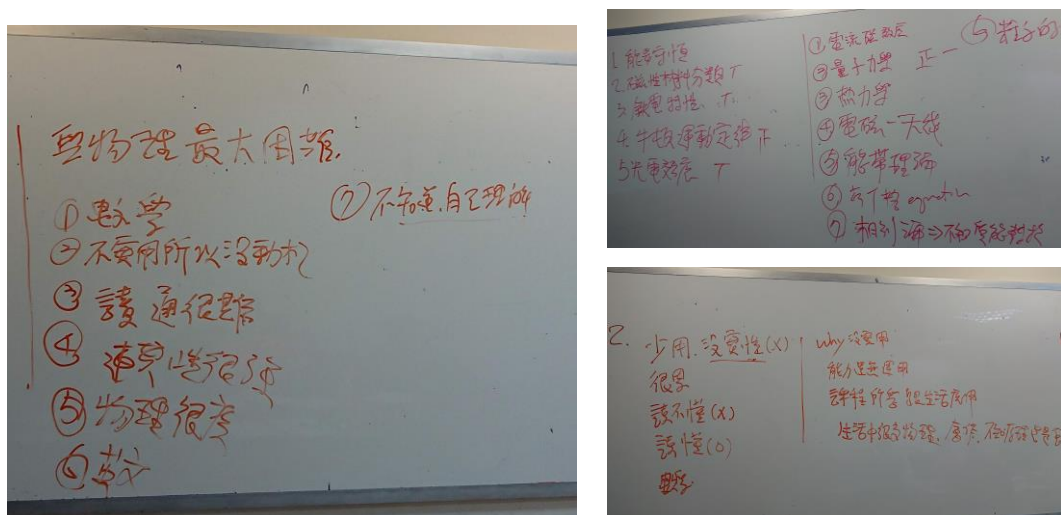 學物理最大困難
① 數學
② 不實用所以沒動机
③ 讀通很難
④ 連貫性
⑤ 物理很廣
⑥ 英文
⑦ 不知道自己理解
1. 能量守恒
2. 磁性材料分類 T
3. 特性 T
4. 牛頓運動定律 正
5 光電效應 T
① 電流磁效應
② 量子力學 正一
③ 热力學
④ 電磁-天線
⑤ 能帶理論
⑥ equation
⑦ 相對論⇒
⑤ 粒子的
2. 少用.沒實性(X)
很累
讀不懂(X)
讀懂(O)
why 沒實用
能力是無運用
課程所學與生活應用
生活中很多物理